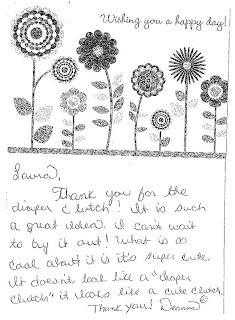 Wishing you a happy day!
Laura,
Thank you for the
diaper clutch! It is such
a great idea. I can't wait
to try it out! What is so
cool about it is it's super cute.
It doesn't look like a "diaper
clutch" it looks like a cute clutch.
Thank you! Deanna